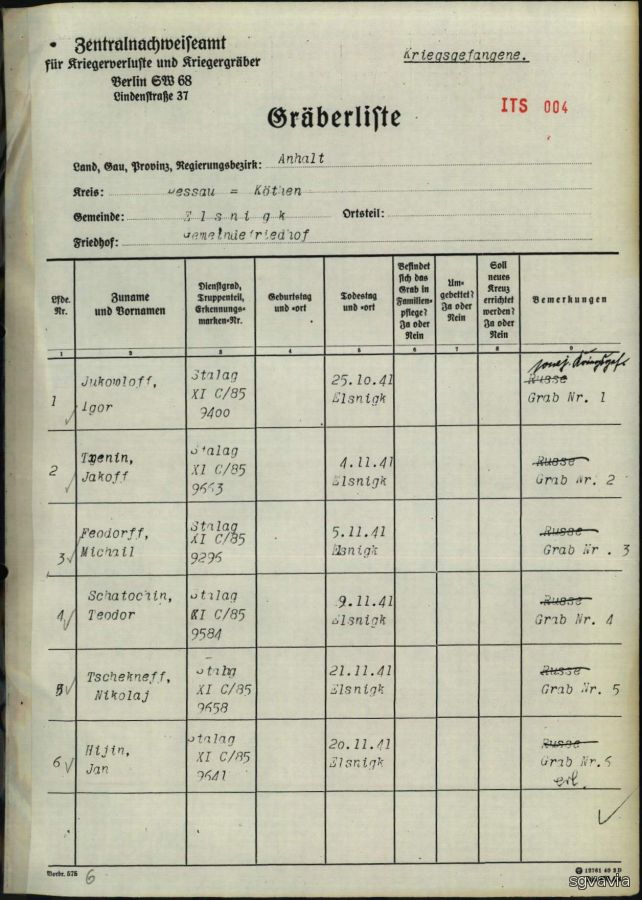 Zentralnachweiseamt
für Kriegerverluste und Kriegergräber
Berlin SW 68
Lindenstraße 37
Kriegsgefangene.
ITS 004
Gräberliste
Land, Gau, Provinz, Regierungsbezirk: Anhalt
Kreis: Dessau = Köthen
Gemeinde: Elsnigk Ortsteil:
Friedhof: Gemeindefriedhof
Lfde. Nr.
Zuname und Vornamen
Dienstgrad, Truppenteil, Erkennungsmarken-Nr.
Geburtstag und -ort
Todestag und -ort
Befindet sich das Grab in Familienpflege? Ja oder Nein
Umgebettet? Ja oder Nein
Soll neues Kreuz errichtet werden? Ja oder Nein
Bemerkungen
1 2 3 4 5 6 7 8 9
sowj. Kriegsgef.
Jukowloff, Stalag 25.10.41 Russe
1 Igor XI C/85 Elsnigk Grab Nr. 1
9400
Tzenin, Stalag 4.11.41 Russe
2 Jakoff XI C/85 Elsnigk Grab Nr. 2
9663
Feodorff, Stalag 5.11.41 Russe
3 Michail XI C/85 Elsnigk Grab Nr. 3
9296
Schatochin, Stalag 9.11.41 Russe
4 Teodor XI C/85 Elsnigk Grab Nr. 4
9584
Tschekneff, Stalag 21.11.41 Russe
5 Nikolaj XI C/85 Elsnigk Grab Nr. 5
9658
Hijin, Stalag 20.11.41 Russe
6 Jan XI C/85 Elsnigk Grab Nr. 6
9641 erl.
Vordr. 575 6
sgvavia